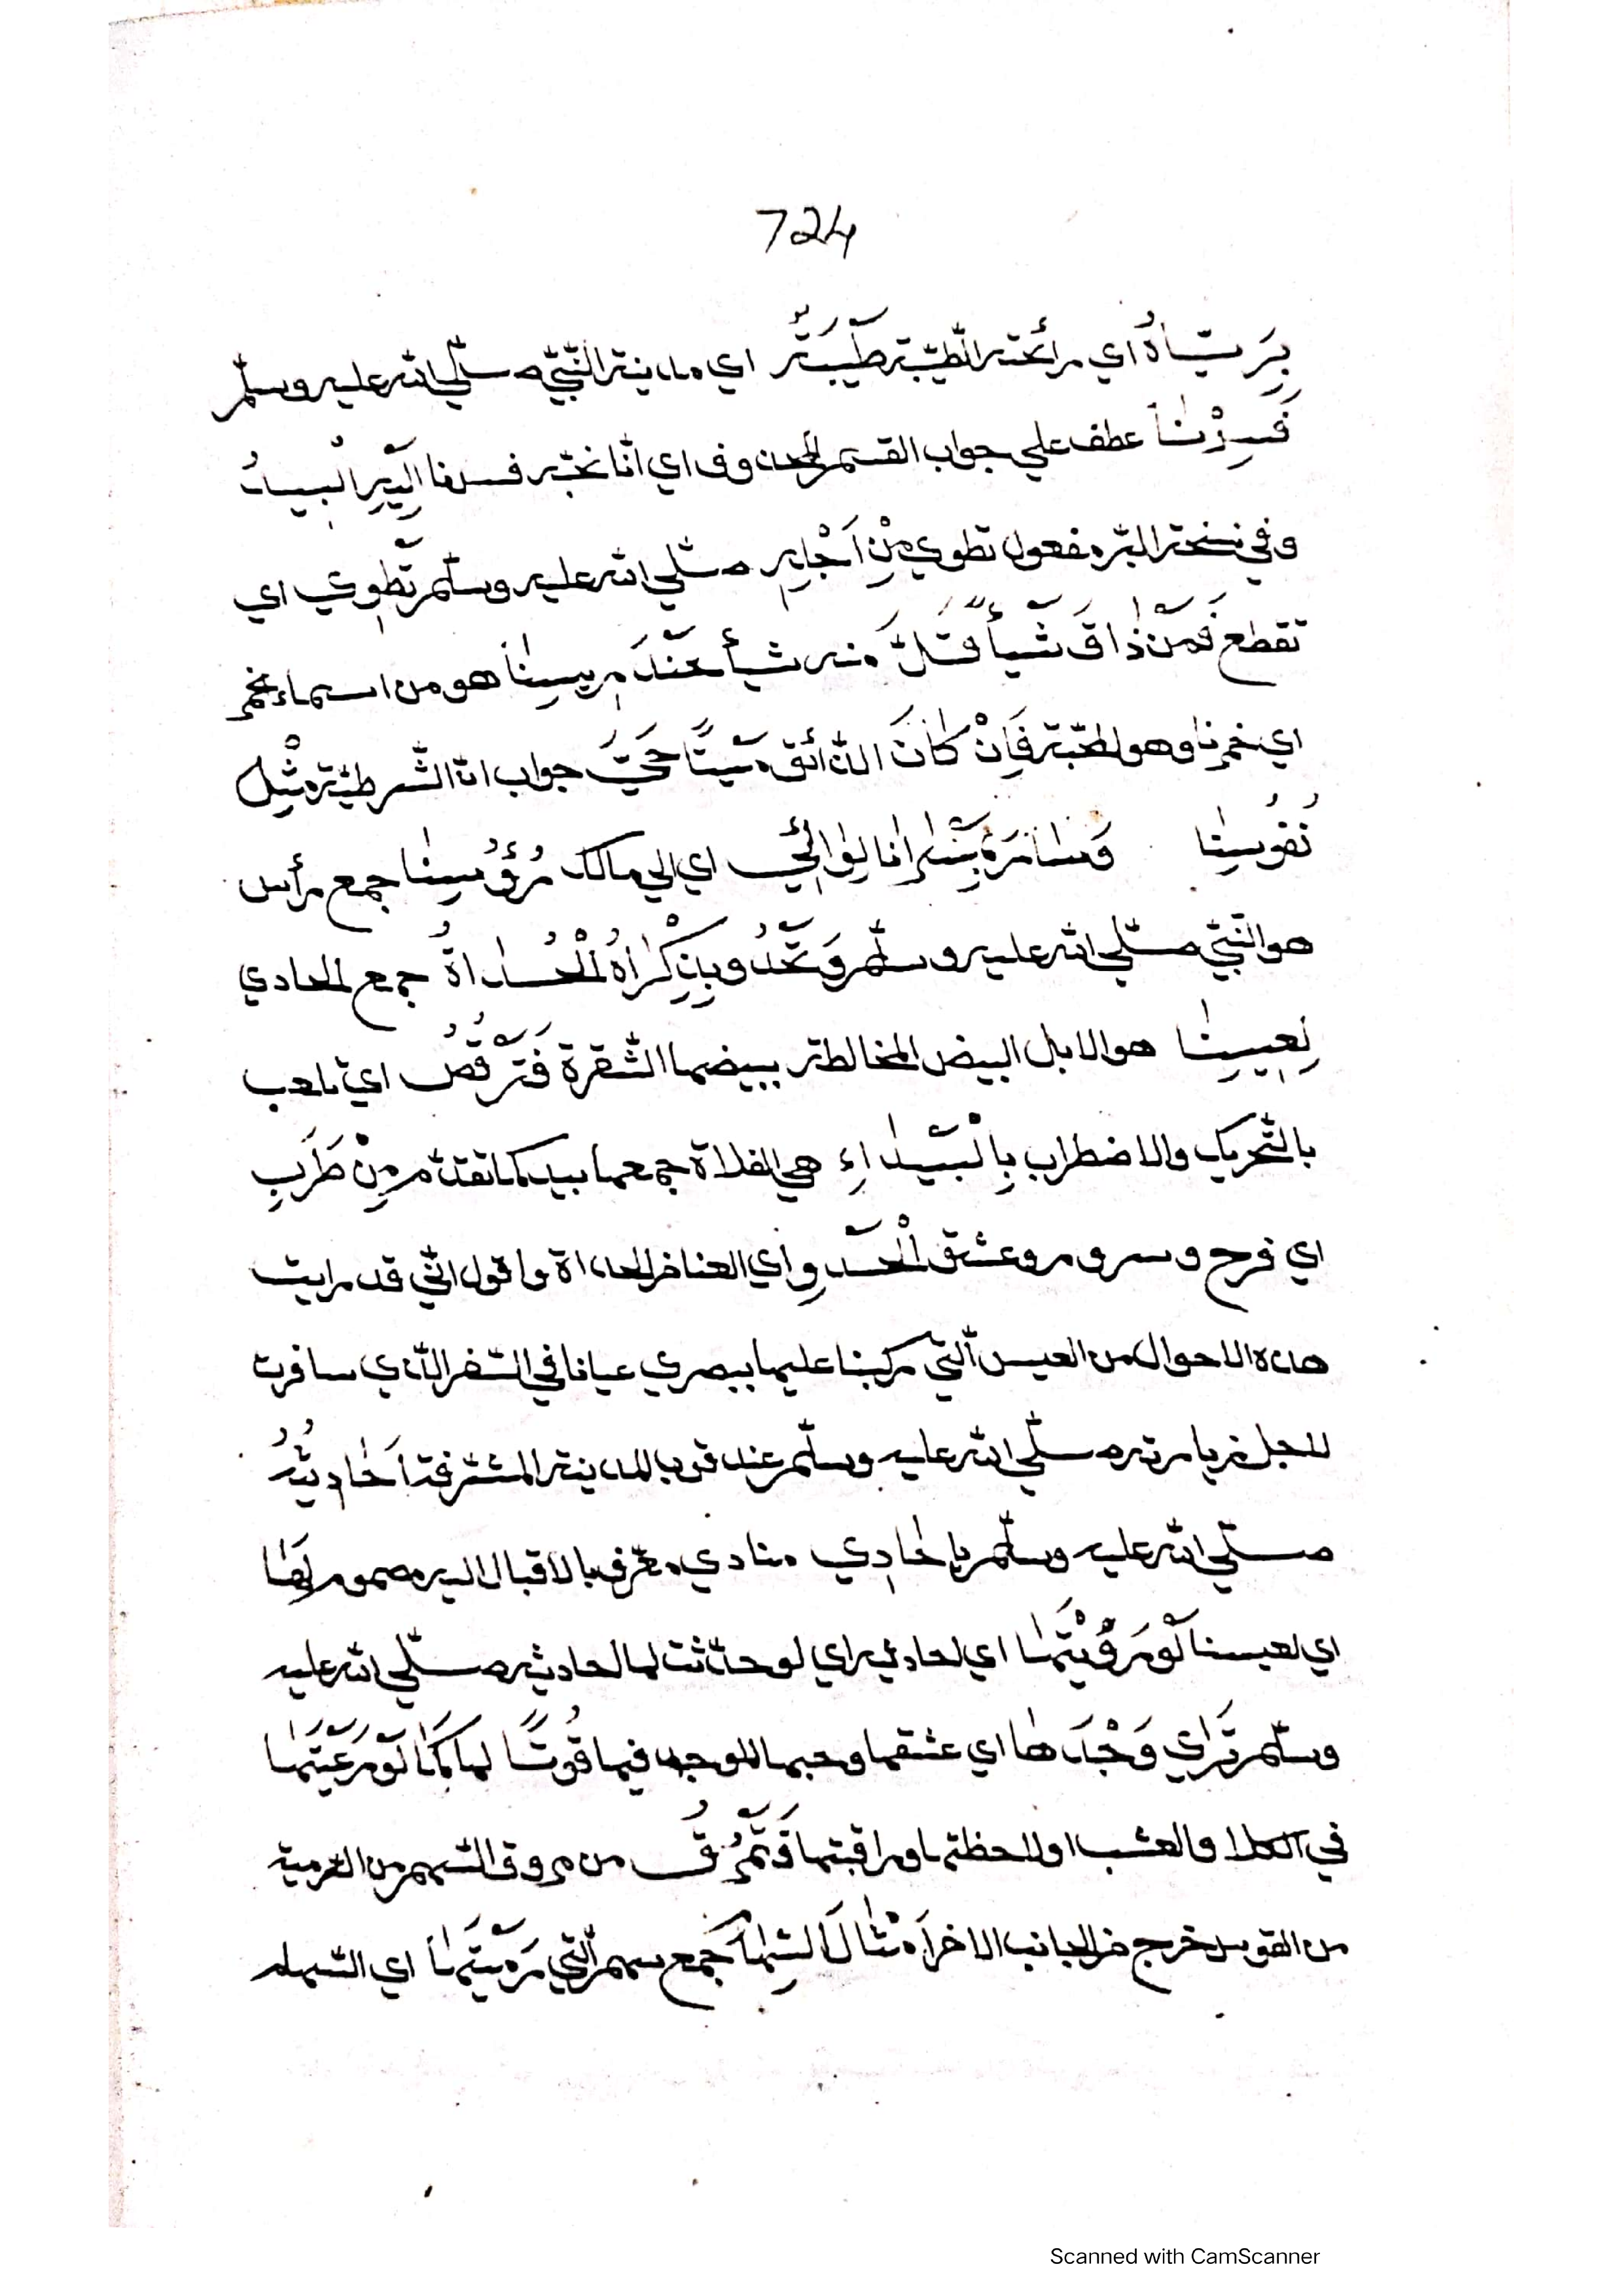 724
بِرَيَّاهُ اي رائحته الطّيّبة طَيْبَةُ اي مدينة النّبيّ صلّي الله عليه وسلّم
فَسِرْنَا عطف علي جواب القسم المحذوف اي انّا نحبّه فسرنا اِلَيْهِ الْبِيدُ
وفي نسخة البرّ مفعول نطوي مِنْ اَجْلِهِ صلّي الله عليه وسلّم نَطْوِي اي
نقطع فَمَنْ ذَاقَ شَيْأً قَلَّ منه شيأ عَنْدَرِيسِنَا هو من اسماء خمر
اي خمرنا وهو المحبّة فَاِنْ كَانَ الذّائق مَيْتًا حَيَّ جواب ان الشّرطيّة مِثْلَ
نُفُوسِنَا وَسَامِرَةٍ اِنَّا لِوَالِي اي الي مالك رُؤُسِنَا جمع رأس
هو النّبيّ صلّي الله عليه وسلّم وَتَحْدُو بِذِكْرَاهُ الْحُدَاةُ جمع الحادي
لِعِيسِنَا هو الابل البيض المخالطة ببيضها الشّقرة فَتَرْقُصُ اي تلعب
بالتّحريك والاضطراب بِالْبَيْدَاءِ هي الفلاة جمعها بيد كما تقدّم مِنْ طَرَبِ
اي فرح وسرور وعشق الْحَدْوِ اي الغنا من الحداة واقول انّي قد رايت
هذه الاحوال من العيس الّتي ركبنا عليها ببصري عيانا في السّفر الّذي سافرت
لاجل زيارته صلّي الله عليه وسلّم عند قرب المدينة المشرّفة اَحَادِيثُهُ
صلّي الله عليه وسلّم يا حَادِي منادي معرّف بالاقبال اليه لَهَا
اي لعيسنا لَوْ رَوَيْتَهَا اي احاديثه اي لو حدّثت لها احاديثه صلّي الله عليه
وسلّم تَرَاي وَجْدَهَا اي عشقها وحبها للوجد فيها قُوتًا لها كَمَا لَوْ رَعَيْتَهَا
في الكلا والعشب او لاحظتها وراقبتها وَتَمْرُقُ من مروق السّهم من الرّمية
من القوس خرج من الجانب الاخر اَمْثَالَ السِّهَامِ جمع سهم الّتي رَمَيْتَهَا اي السّهام
Scanned with CamScanner